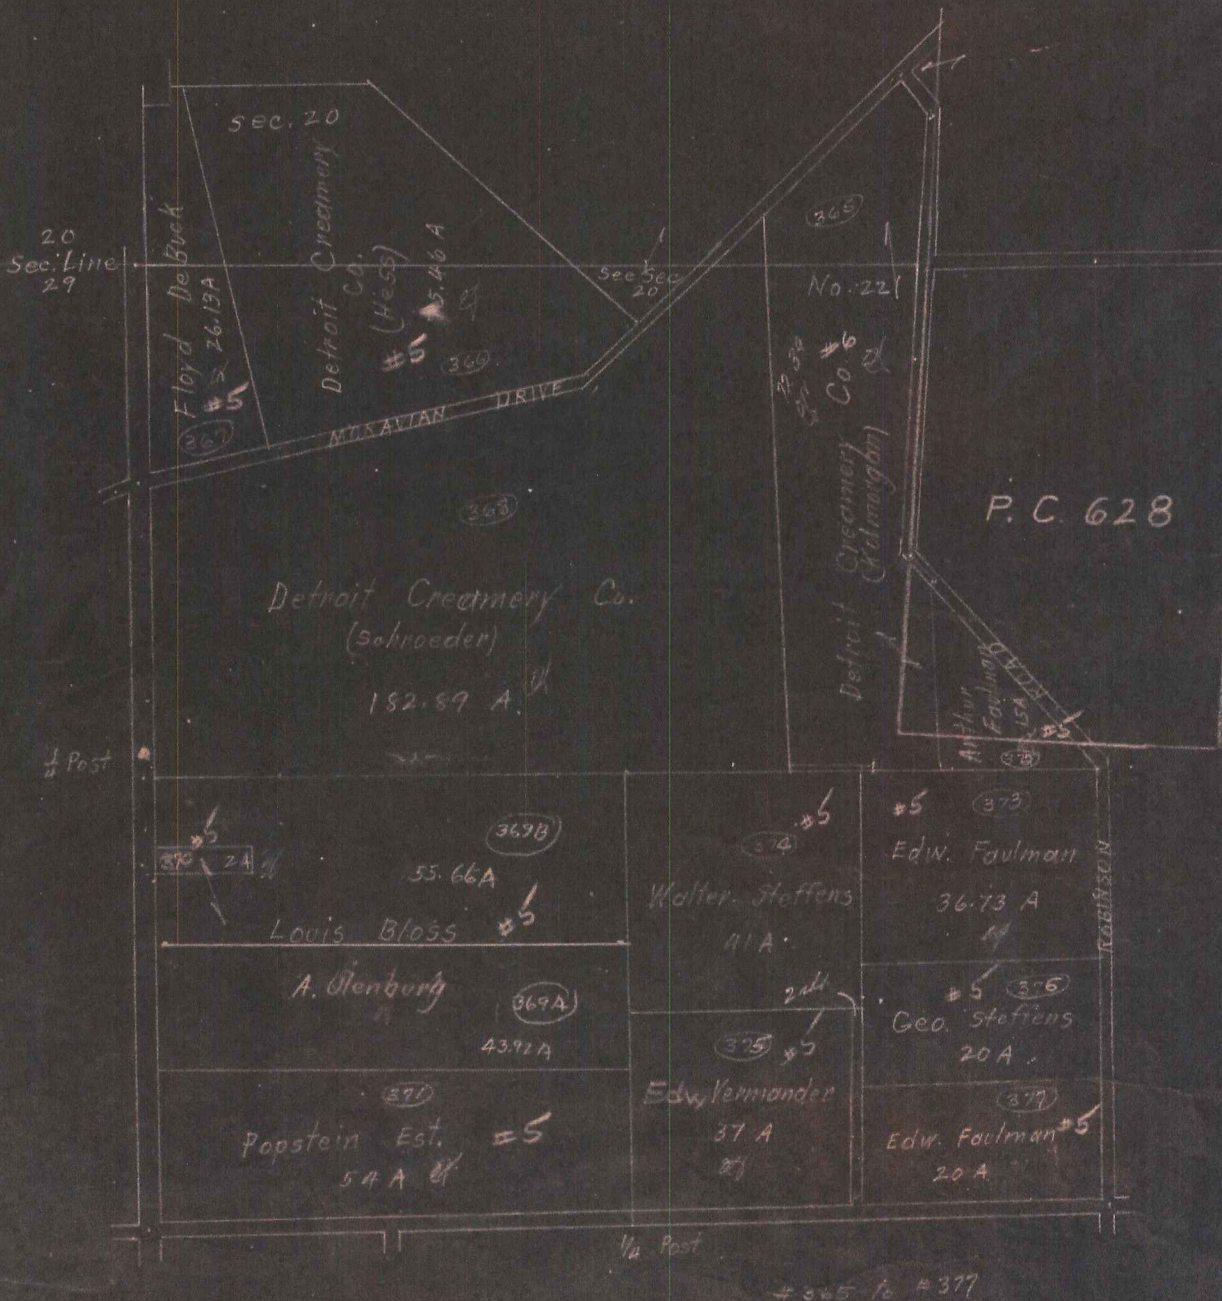 sec. 20
20
Sec. Line
29
Floyd DeBuck
26.13A
#5
367
Detroit Creamery
Co.
(Hess)
5.46 A
#5
366
See Sec
20
365
No. 221
#6
Detroit Creamery Co
MORAVIAN DRIVE
P. C. 628
368
Detroit Creamery Co.
(Schroeder)
182.89 A.
Arthur
Faulman
15A
#5
372
ROAD
1/4 Post
#5
370 2A
369B
55.66A
Louis Bloss #5
A. Olenburg
369A
43.92A
371
Popstein Est. #5
54 A
#5
374
Walter Steffens
41 A.
2 rds
375 #5
Edw. Vermander
37 A
#5 373
Edw. Faulman
36.73 A
ROBINSON
#5 376
Geo. Steffens
20 A.
377
Edw. Faulman #5
20 A
1/4 Post
#365 to #377